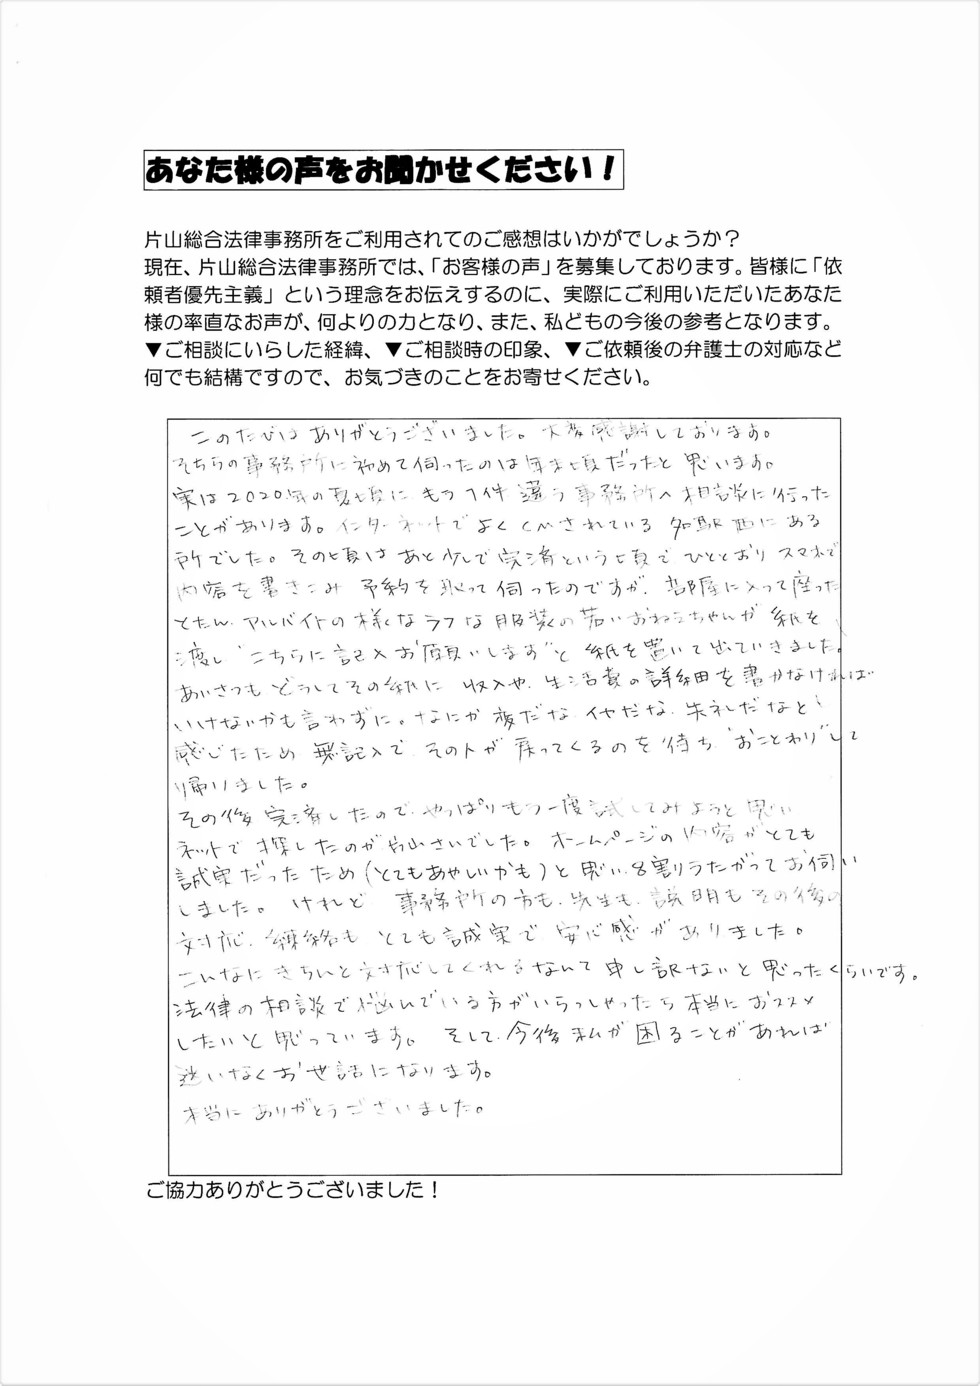 あなた様の声をお聞かせください！
片山総合法律事務所をご利用されてのご感想はいかがでしょうか？
現在、片山総合法律事務所では、「お客様の声」を募集しております。皆様に「依
頼者優先主義」という理念をお伝えするのに、実際にご利用いただいたあなた
様の率直なお声が、何よりの力となり、また、私どもの今後の参考となります。
▼ご相談にいらした経緯、▼ご相談時の印象、▼ご依頼後の弁護士の対応など
何でも結構ですので、お気づきのことをお寄せください。
このたびはありがとうございました。大変感謝しております。
そちらの事務所に初めて伺ったのは年末頃だったと思います。
実は2020年の夏頃に もう1件違う事務所へ相談に行った
ことがあります。インターネットでよくCMされている 名駅西にある
所でした。その頃はあと少しで完済という頃で ひととおりスマホで
内容を書きこみ 予約を取って伺ったのですが、部屋に入って座った
とたん、アルバイトの様なラフな服装の若いおねえちゃんが 紙を
渡し"こちらに記入お願いします"と 紙を置いて出ていきました。
あいさつもどうしてその紙に 収入や、生活費の詳細を書かなければ
いけないかも言わずに。なにか変だな、イヤだな、失礼だなと
感じたため 無記入で、その人が戻ってくるのを待ち"おことわり"して
帰りました。
その後完済したので、やっぱりもう一度試してみようと思い
ネットで探したのが片山さいでした。ホームページの内容がとても
誠実だったため(とてもあやしいかも)と思い8割りうたがってお伺い
しました。けれど、事務所の方も、先生も、説明もその後の
対応、連絡も とても誠実で 安心感がありました。
こんなにきちんと対応してくれるなんて申し訳ないと思ったくらいです。
法律の相談で悩んでいる方がいらっしゃったら本当におススメ
したいと思っています。そして、今後私が困ることがあれば
迷いなくお世話になります。
本当にありがとうございました。
ご協力ありがとうございました！